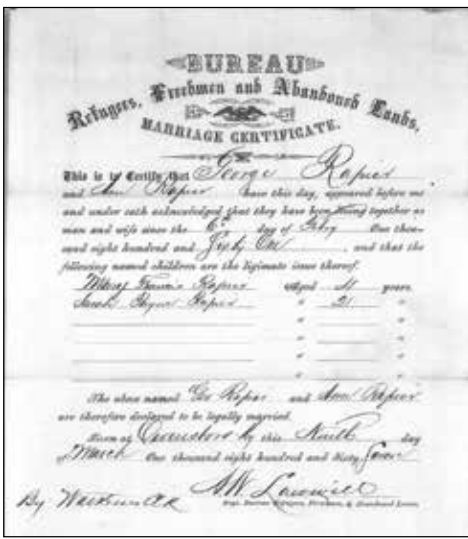 BUREAU
Refugees, Freedmen and Abandoned Lands,
MARRIAGE CERTIFICATE.
This is to Certify that George Rapier
and Ann Rapier have this day, appeared before me
and under oath acknowledged that they have been living together as
man and wife since the 6th day of Feby One thou-
sand eight hundred and Sixty One, and that the
following named children are the legitimate issue thereof.
Mary Francis Rapier Aged 4 years
Rapier " 2 "
" "
" "
" "
" "
The above named Geo Rapier and Ann Rapier
are therefore declared to be legally married.
Given at Owensboro Ky this Ninth day
of March One thousand eight hundred and Sixty Seven
A.W. Lawwill
By Supt. Bureau Refugees, Freedmen, & Abandoned Lands.